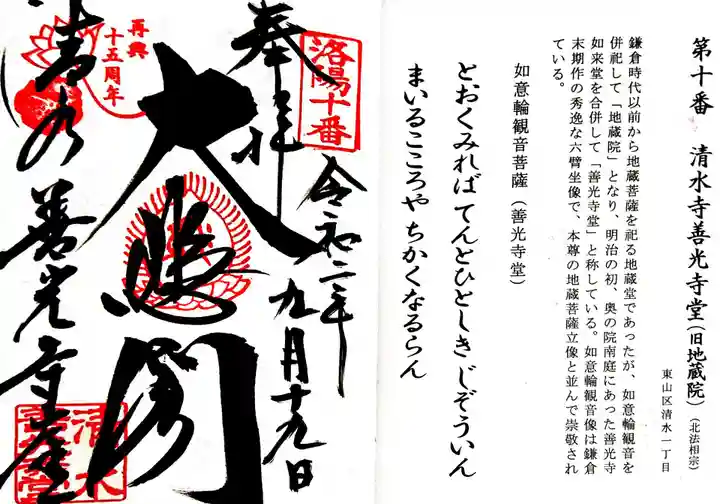 第十番　清水寺善光寺堂（旧地蔵院）（北法相宗）
東山区清水一丁目
鎌倉時代以前から地蔵菩薩を祀る地蔵堂であったが、如意輪観音を
併祀して「地蔵院」となり、明治の初、奥の院南庭にあった善光寺
如来堂を合併して「善光寺堂」と称している。如意輪観音像は鎌倉
末期作の秀逸な六臂坐像で、本尊の地蔵菩薩立像と並んで崇敬され
ている。
如意輪観音菩薩（善光寺堂）
とおくみれば てんとひとしき じぞういん
まいるこころや ちかくなるらん
洛陽十番
奉拝
令和二年九月十九日
大悲閣
再興
十五周年
清水善光寺堂
清水